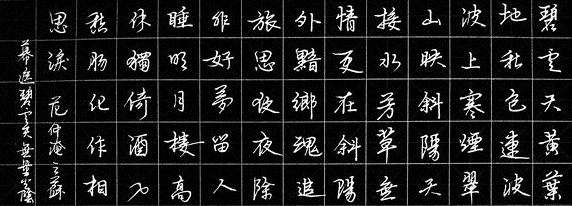 碧雲天黃葉
地秋色連波
波上寒煙翠
山映斜陽天
接水芳草無
情更在斜陽
外黯鄉魂追
旅思夜夜除
非好夢留人
睡明月樓高
休獨倚酒入
愁腸化作相
思淚 范仲淹之蘇
幕遮碧雲天無量